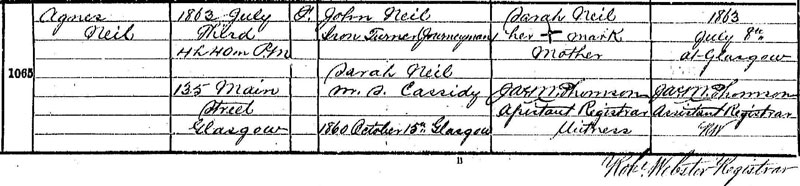 1065
Agnes
Neil
1863 July
Third
4h 40m P.M
135 Main
Street
Glasgow
F.
John Neil
Iron Turner Journeyman
Sarah Neil
M. S. Cassidy
1860 October 15th Glasgow
Sarah Neil
her + mark
Mother
Jas. M. Thomson
Assistant Registrar
Witness
1863
July 8th
at Glasgow
Jas. M. Thomson
Assistant Registrar
RW
Robt. Webster Registrar